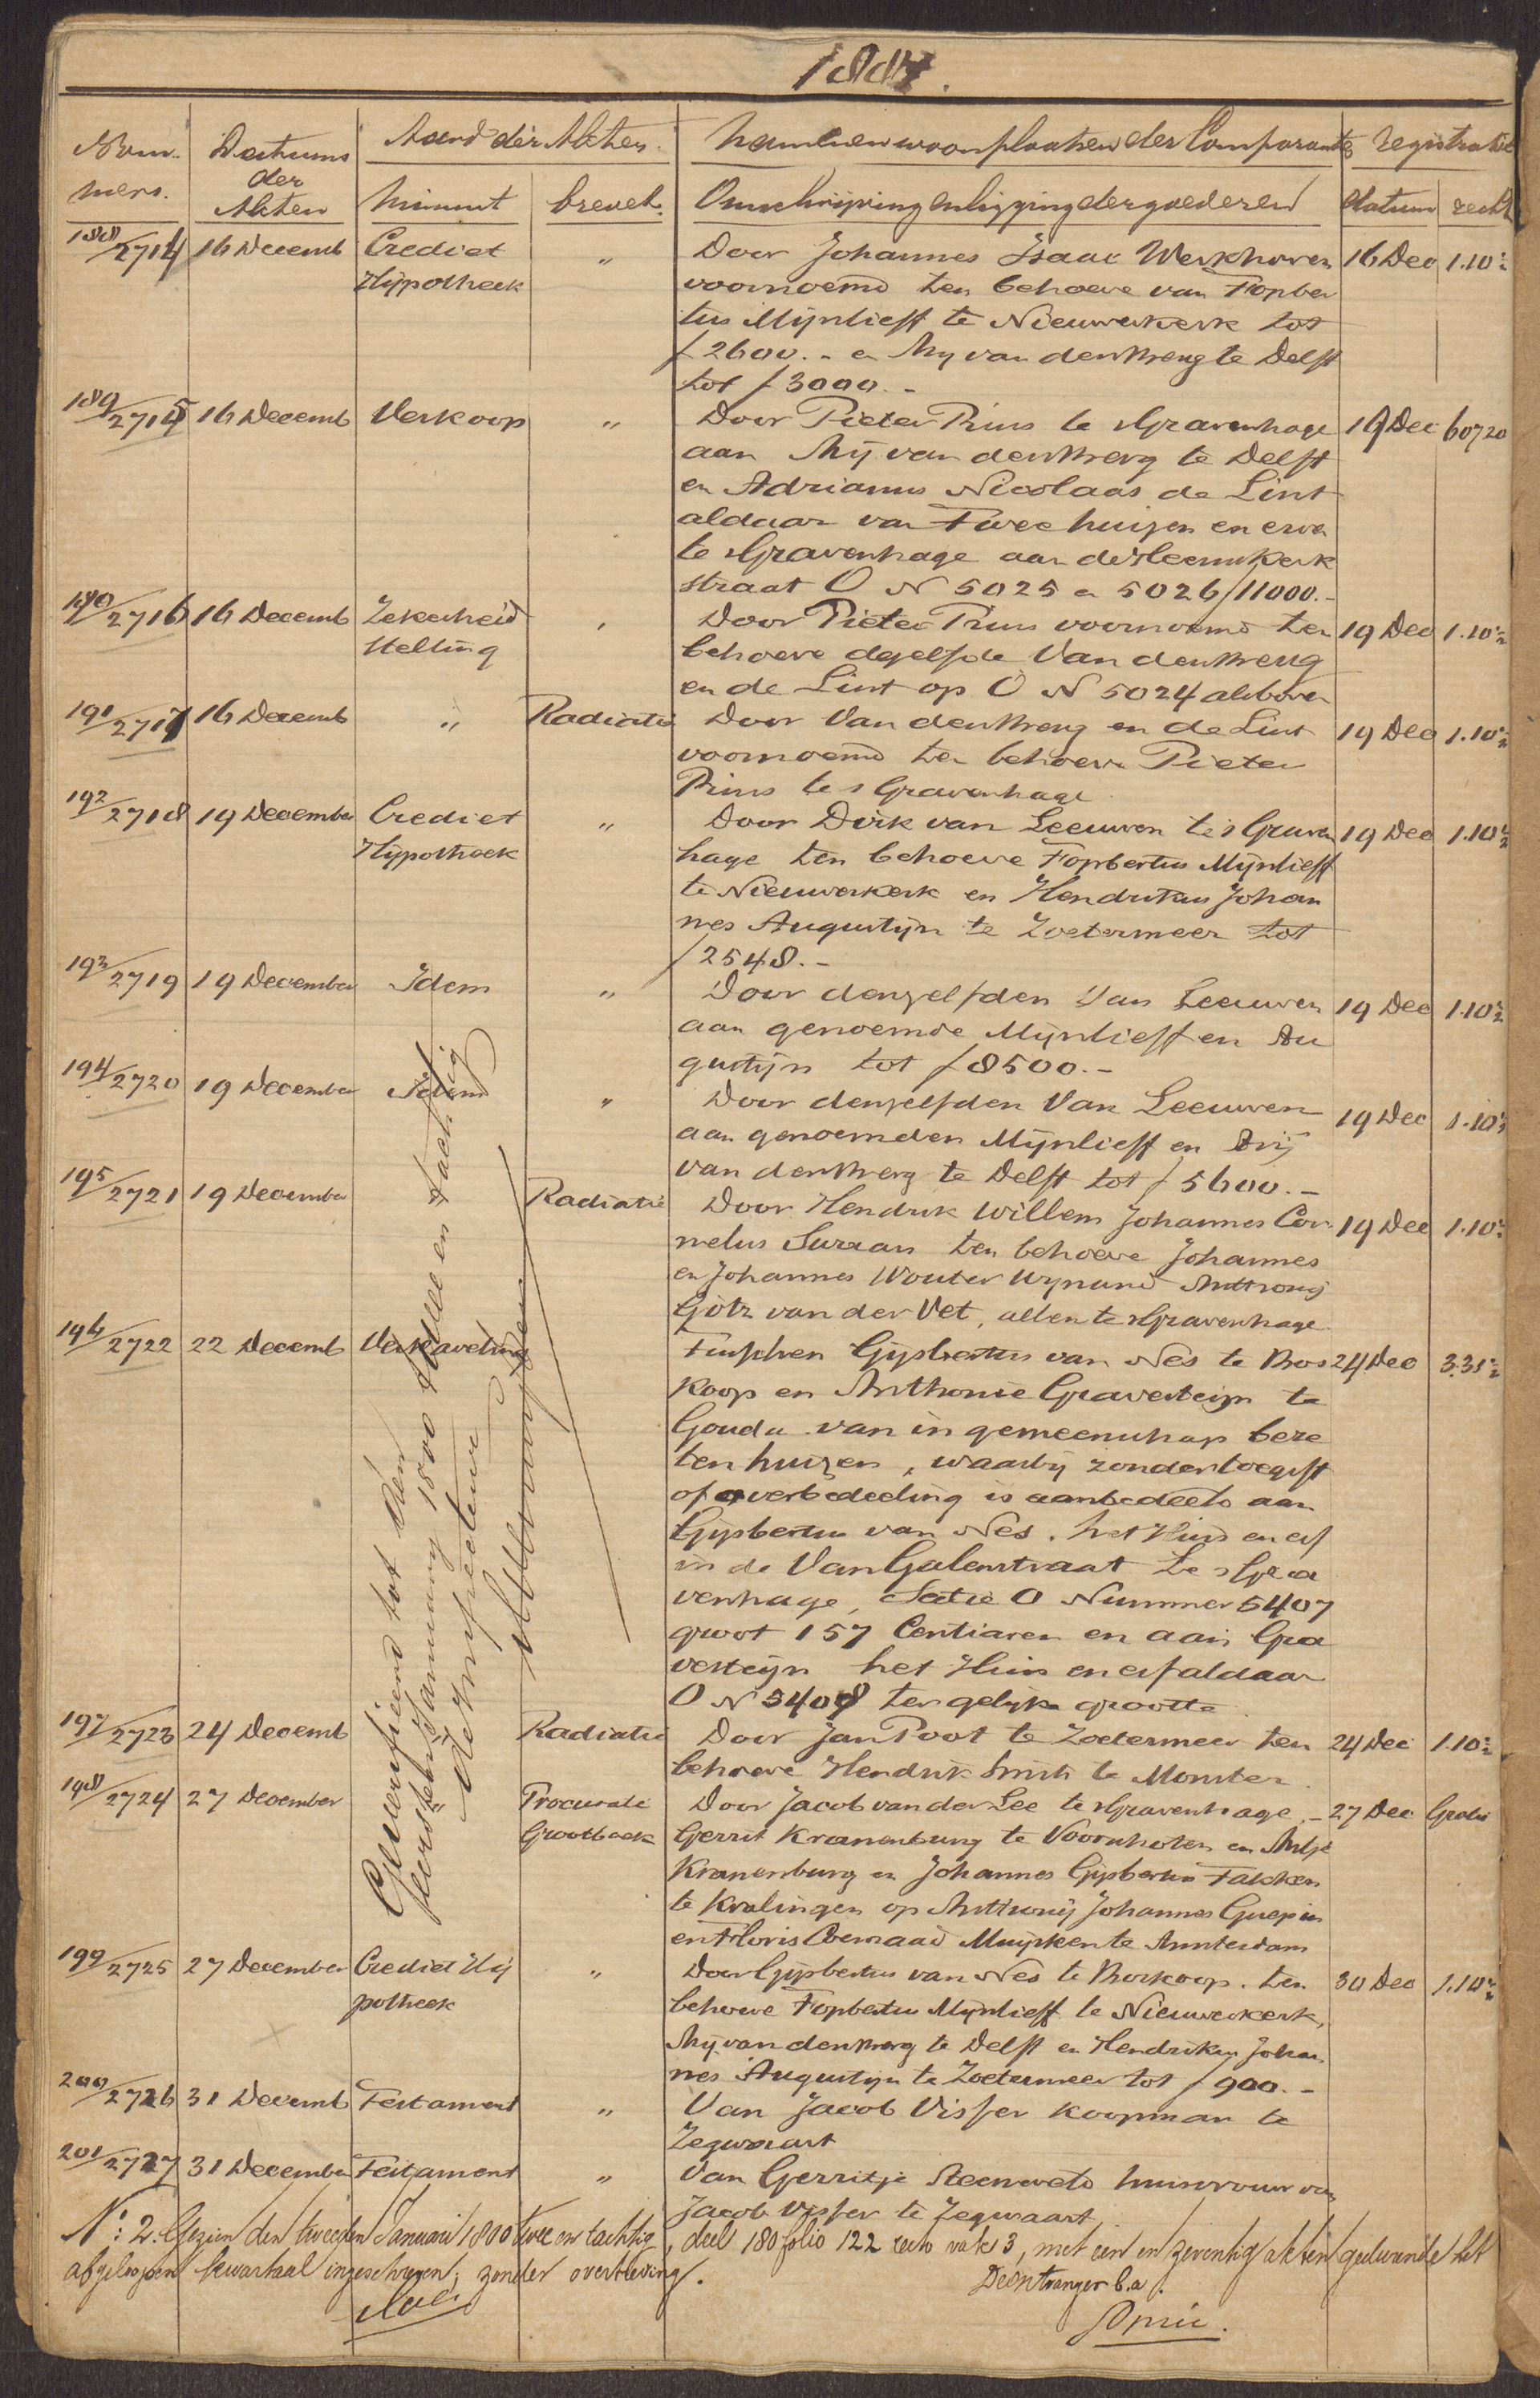 Nommers.
Datums der Akten
Aard der Akten.
Minuut
brevet.
Namen en woonplaatsen der Comparanten
Omschrijving en ligging der goederen
Registratie
datum
recht
188/2714 16 Decemb Crediet " Door Johannes Isaac Werkhoven 16 Dec 1.10½
Hypotheek voornoemd ten behoeve van Fopber
tus Mijnlieff te Nieuwerkerk tot
ƒ 2600.- en Arij van den Berg te Delft
tot ƒ 3000.-
189/2715 16 Decemb Verkoop " Door Pieter Prins te sGravenhage 19 Dec 607 20
aan Arij van den Berg te Delft
en Adrianus Nicolaas de Lint
aldaar van Twee huizen en erve
te sGravenhage aan de Heemskerk
straat O N 5025 en 5026 ƒ 11000.-
190/2716 16 Decemb Zekerheid " Door Pieter Prins voornoemd ten 19 Dec 1.10½
Stelling behoeve dezelfde Van den Berg
en de Lint op O N 5024 alsboven
191/2717 16 Decemb " Radiatie Door Van den Berg en de Lint 19 Dec 1.10½
voornoemd ten behoeve Pieter
Prins te sGravenhage
192/2718 19 December Crediet " Door Dirk van Leeuwen te sGraven 19 Dec 1.10½
Hypotheek hage ten behoeve Fopbertus Mijnlieff
te Nieuwerkerk en Hendrikus Johan
nes Augustijn te Zoetermeer tot
ƒ 2548.-
193/2719 19 December Idem " Door denzelfden Van Leeuwen 19 Dec 1.10½
aan genoemde Mijnlieff en Au
gustijn tot ƒ 8500.-
194/2720 19 December Idem " Door denzelfden Van Leeuwen 19 Dec 1.10½
aan genoemden Mijnlieff en Arij
van den Berg te Delft tot ƒ 5600.-
195/2721 19 December Radiatie Door Hendrik Willem Johannes Cor 19 Dec 1.10½
nelus ten behoeve Johannes
en Johannes Wouter Wynand Anthonij
Götz van der Vet, allen te sGravenhage
196/2722 22 Decemb Verkaveling Tusschen Gijsbertus van Nes te Bos 24 Dec 3.31½
koop en Anthonie Gravesteijn te
Gouda van in gemeenschap beze
ten huizen, waarbij zonder toegift
of overbedeeling is aanbedeeld aan
Gijsbertus van Nes. het Huis en erf
in de Van Galenstraat te sGra
venhage, Sectie O Nummer 5407
groot 157 Centiaren en aan Gra
vesteijn het Huis en erf aldaar
O N 5408 ter gelijke grootte
197/2723 24 Decemb Radiatie Door Jan Poot te Zoetermeer ten 24 Dec 1.10½
behoeve Hendrik Smit te Monster.
198/2724 27 December Procuratie Door Jacob van der Lee te sGravenhage,- 27 Dec Gratis
Grootboek Gerrit Kranenburg te Voorschoten en Antje
Kranenburg en Johannes Gijsbertus Takken
te Kralingen op Anthonij Johannes Guepin
en Floris Coenraad Muysken te Amsterdam
199/2725 27 December Crediet Hy " Door Gijsbertus van Nes te Boskoop. ten 30 Dec 1.10½
potheek behoeve Fopbertus Mijnlieff te Nieuwerkerk,
Arij van den Berg te Delft en Hendrikus Johan
nes Augustijn te Zoetermeer tot ƒ 900.-
200/2726 31 Decemb Testament " Van Jacob Visser koopman te
Zegwaart
201/2727 31 December Testament " Van Gerritje Steenveld huisvrouw van
Jacob Visser te Zegwaart
Geverifieerd tot den
eersten Januari 1800 twee en tachtig
De Inspecteur
No: 2. Gezien den tweeden Januari 1800 twee en tachtig, deel 180 folio 122 recto vak 3, met een en zeventig akten gedurende het
afgeloopen kwartaal ingeschreven; zonder overtreding.
De Ontvanger b.a.